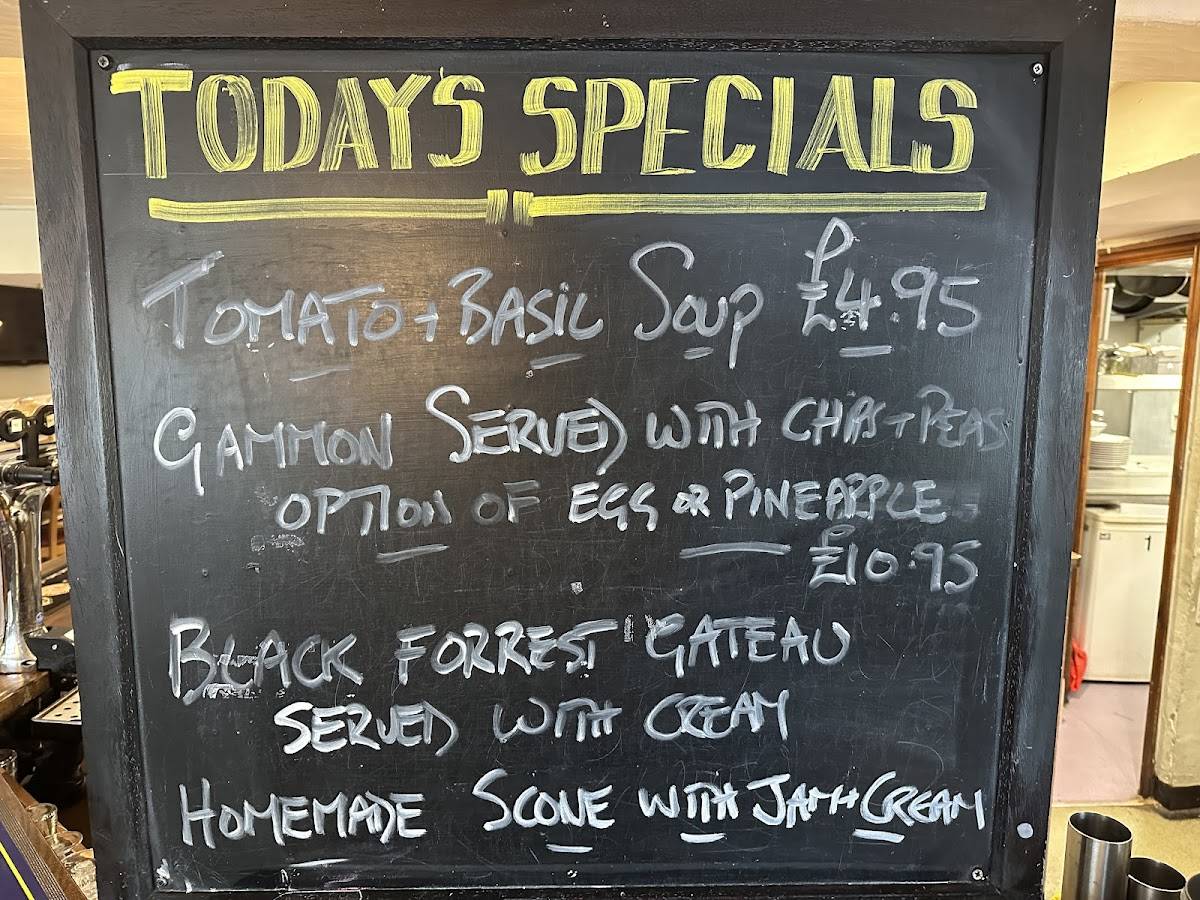 TODAY'S SPECIALS
TOMATO + BASIL SOUP £4.95
GAMMON SERVED WITH CHIPS + PEAS
OPTION OF EGG OR PINEAPPLE
£10.95
BLACK FORREST GATEAU
SERVED WITH CREAM
HOMEMADE SCONE WITH JAM + CREAM
1